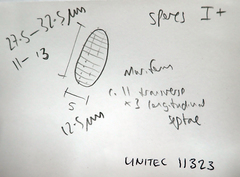 27.5 – 32.5 µm
11 – 13
spores I+
Muriform
c. 11 transverse
× 3 longitudinal
septae
S
12.5 µm
UNITEC 11323